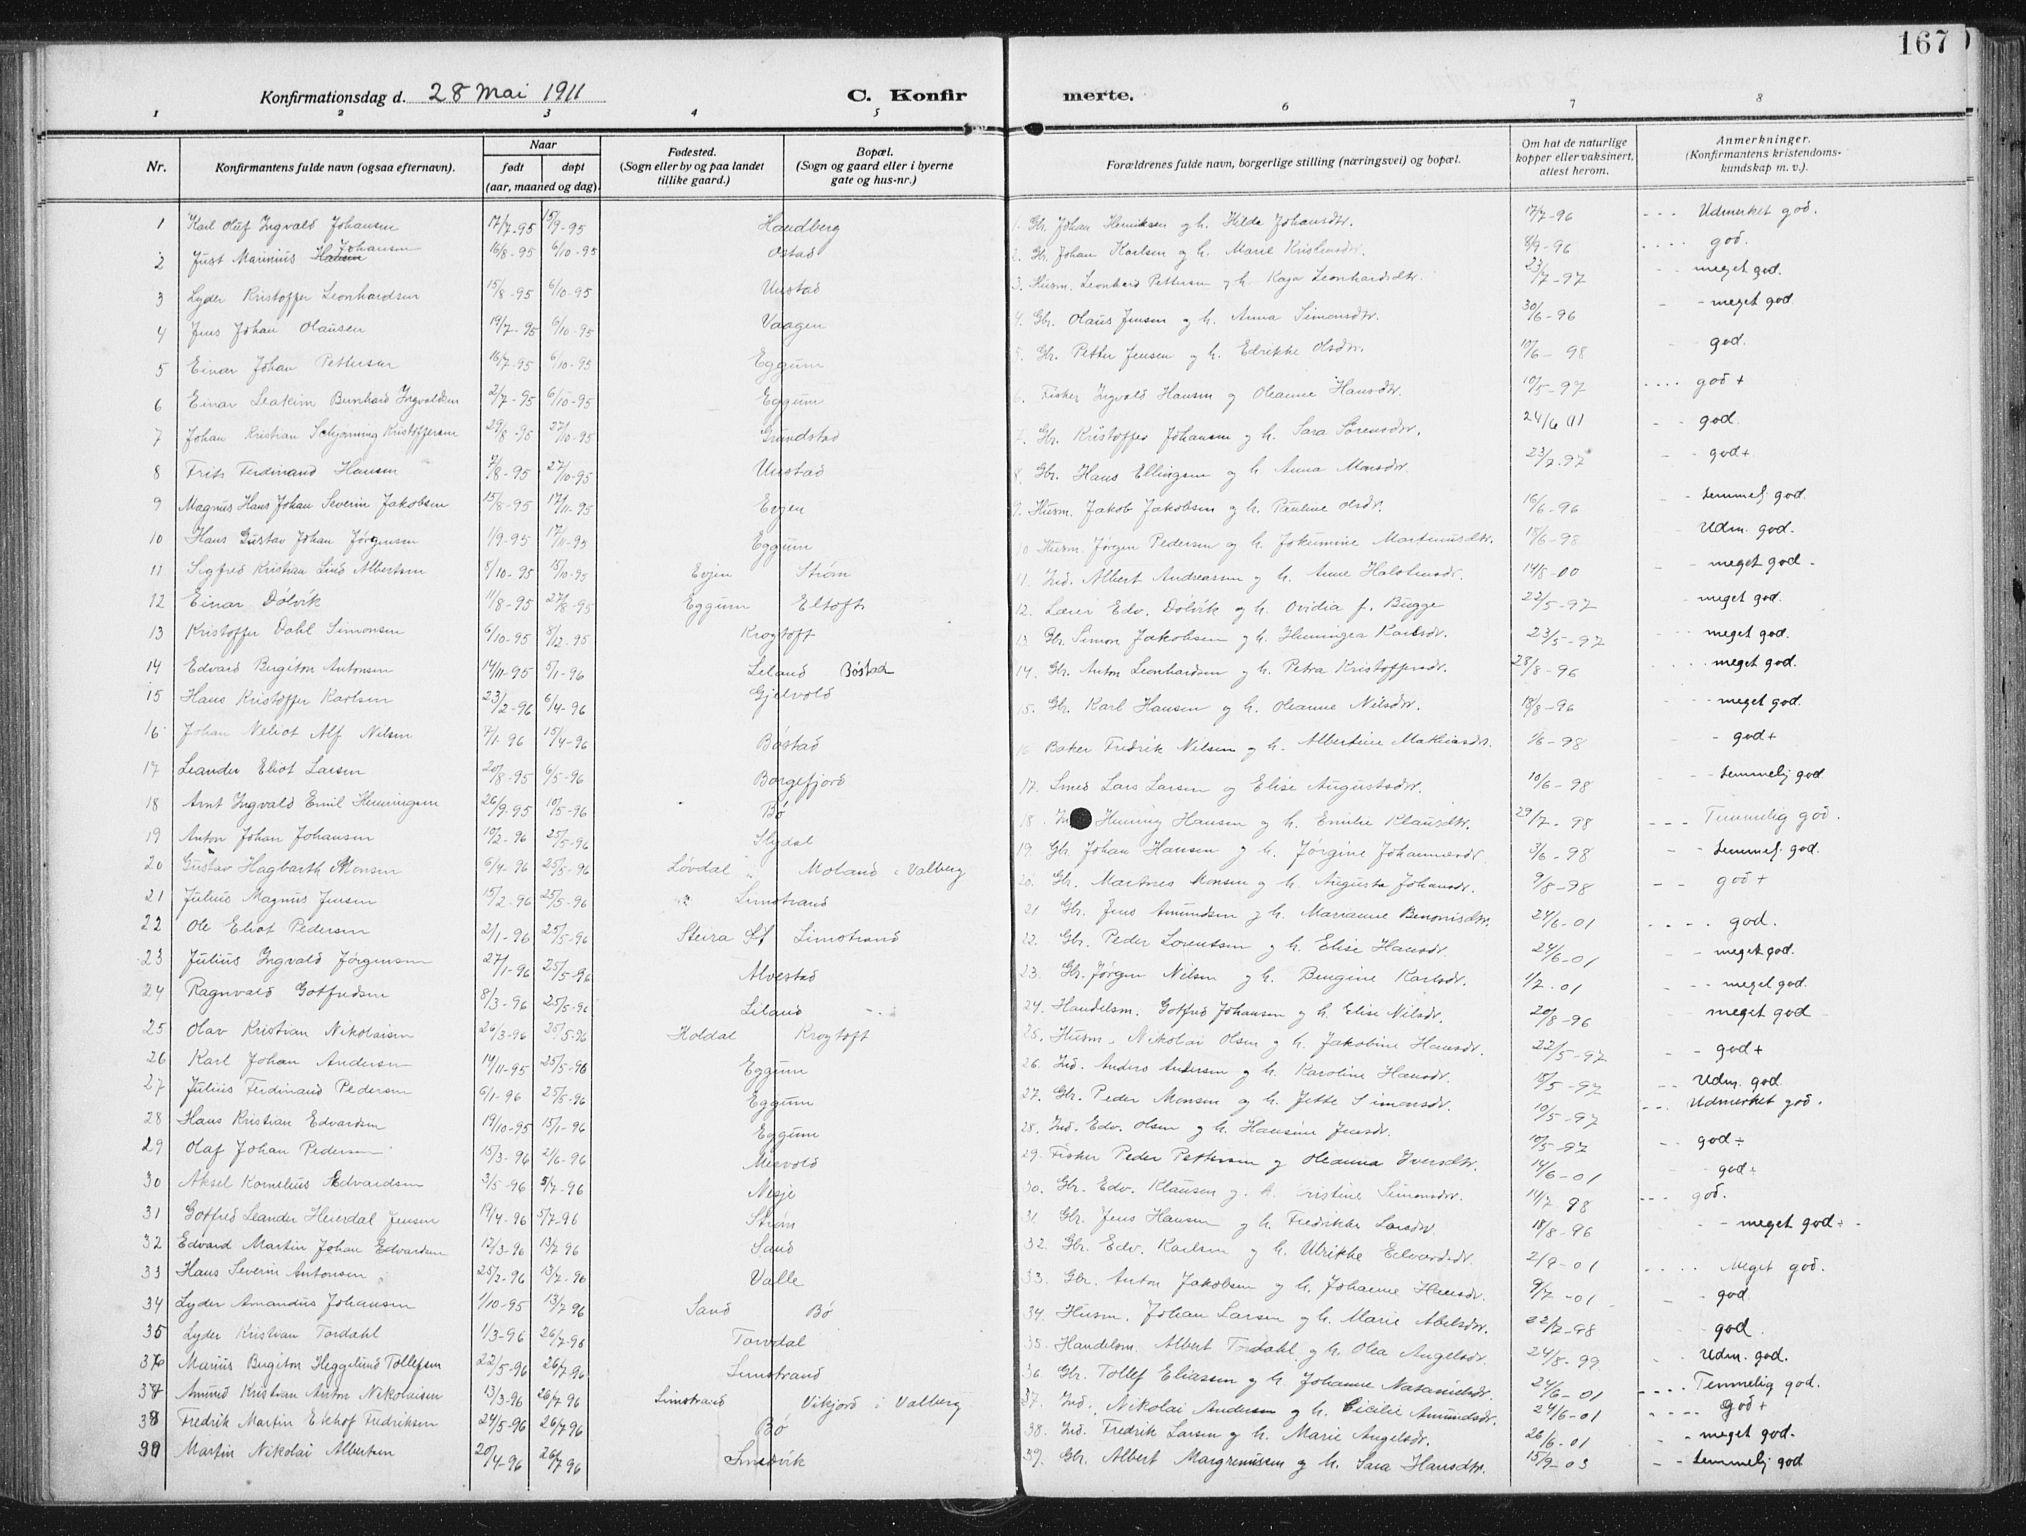 167
Konfirmationsdag d. 28 Mai 1911 C. Konfirmerte.
1 2 3 4 5 6 7 8
Nr. Konfirmantens fulde navn (ogsaa efternavn). Naar født døpt (aar, maaned og dag). Fødested. (Sogn eller by og paa landet tillike gaard.) Bopæl. (Sogn og gaard eller i byerne gate og hus-nr.) Forældrenes fulde navn, borgerlige stilling (næringsvei) og bopæl. Om hat de naturlige kopper eller vaksinert, attest herom. Anmerkninger. (Konfirmantens kristendoms-kundskap m. v.).
1 Karl Oluf Ingvald Johansen 17/7-95 15/9-95 Handberg 1. Gbr. Johan Henriksen og h. Hilda Johansdtr. 17/7-96 Udmerket god.
2 Just Marinius Johansen 16/8-95 6/10-95 Ostad 2. Gbr. Johan Karlsen og h. Marie Kristensdtr. 8/9-96 god.
3 Lyder Kristoffer Leonhardsen 15/8-95 6/10-95 Unstad 3. Husm. Leonhard Pettersen og h. Kaja Leonhardsdtr. 23/7-97 meget god.
4 Jens Johan Olausen 19/7-95 6/10-95 Vaagen 4. Gbr. Olaus Jensen og h. Anna Simonsdtr. 30/6-96 meget god.
5 Einar Johan Pettersen 16/7-95 6/10-95 Eggum 5. Gbr. Petter Jensen og h. Edrikke Olsdtr. 10/6-98 god.
6 Einar Leakim Bernhard Ingvaldsen 2/7-95 6/10-95 Eggum 6. Fisker Ingvald Hansen og Oleanne Hansdtr. 10/5-97 god +
7 Johan Kristian Schjønning Kristoffersen 29/8-95 27/10-95 Grundstad 7. Gbr. Kristoffer Johansen og h. Sara Sørensdtr. 24/6 01 god.
8 Frits Ferdinand Hansen 7/8-95 27/10-95 Unstad 8. Gbr. Hans Ellingsen og h. Anna Monsdtr. 23/7-97 god+
9 Magnus Hans Johan Severin Jakobsen 15/8-95 17/11-95 Evjen 9. Husm. Jakob Jakobsen og h. Pauline Olsdtr. 16/6-96 temmel. god.
10 Hans Gustav Johan Jørgensen 1/9-95 17/11-95 Eggum 10. Husm. Jørgen Pedersen og h. Jokumine Martinusdtr. 15/6-98 Udm. god.
11 Sigfred Kristian Lind Albertsen 8/10-95 15/10-95 Evjen Strøm 11. Ind. Albert Andreassen og h. Anne 14/8-00 meget god.
12 Einar Dølvik 11/8-95 27/8-95 Eggum Eltoft 12. Lærer Edv. Dølvik og h. Ovidia f. Bugge 22/5-97 meget god.
13 Kristoffer Dahl Simonsen 6/10-95 8/12-95 Krogtoft 13. Gbr. Simon Jakobsen og h. Henningea Karlsdtr. 23/5-97 meget god.
14 Edvard Birgiton Antonsen 14/11-95 5/1-96 Leland Bøstad 14. Gbr. Anton Leonhardsen og h. Petra Kristoffersdtr. 28/8-96 meget god.
15 Hans Kristoffer Karlsen 23/2-96 6/4-96 Gjelvold 15. Gbr. Karl Hansen og h. Oleanne Nilsdtr. 18/8-96 meget god.
16 Johan Neliot Alf Nilsen 7/1-96 15/4-96 Bøstad 16 Baker Fredrik Nilsen og h. Albertine Mathiasdtr. 1/6-98 god+
17 Leander Eliot Larsen 20/8-95 6/5-96 Borgefjord 17. Smed Lars Larsen og Elise Augustsdtr. 10/6-98 temmelig god
18 Arnt Ingvald Emil Henningsen 26/9-95 10/5-96 Bø 18. Henning Hansen og h. Emilie Klausdtr. 29/7-98 Temmelig god.
19 Anton Johan Johansen 10/2-96 25/5-96 Slydal 19. Gbr. Johan Hansen og h. Jørgine Johannesdtr. 3/6-98 temmel. god.
20 Gustav Hagbarth Monsen 6/4-96 25/5-96 Løvdal Moland i Valberg 20. Gbr. Martines Monsen og h. Augusta Johansdtr. 9/8-98 god +
21 Julius Magnus Jensen 15/2-96 25/5-96 Limstrand 21 Gbr. Jens Amundsen og h. Marianne Benonisdtr. 24/6-01 god.
22 Ole Eliot Pedersen 2/1-96 25/5-96 Steira Limstrand 22. Gbr. Peder Lorentsen og h. Elise Hansdtr. 24/6-01 meget god.
23 Julius Ingvald Jørgensen 27/1-96 25/5-96 Alvestad 23. Gbr. Jørgen Nilsen og h. Bergine Karlsdtr. 1/7-01 meget god.
24 Ragnvald Gotfredsen 8/3-96 25/5-96 Leland 24. Handelsm. Gotfred Johansen og h. Elise Nilsdtr. 20/8-96 meget god
25 Olav Kristian Nikolaisen 26/3-96 25/5-96 Holdal Krogtoft 25. Husm. Nikolai Olsen og h. Jakobine Hansdtr. 22/5-97 god+
26 Karl Johan Andersen 14/11-95 25/5-96 Eggum 26. Ind. Anders Andersen og h. Karoline Hansdtr. 15/5-97 Udm. god.
27 Julius Ferdinand Pedersen 6/1-96 25/5-96 Eggum 27. Gbr. Peder Monsen og h. Jette Simonsdtr. 10/5-97 Udmerket god.
28 Hans Kristian Edvardsen 19/10-95 15/1-96 Eggum 28. Ind. Edv. Olsen og h. Hansine Jensdtr. 10/5-97 god÷
29 Olaf Johan Pedersen 15/3-96 21/6-96 Mervold 29. Fisker Peder Pettersen og Oleanna Iversdtr. 14/6-01 god÷
30 Aksel Kornelius Edvardsen 3/5-96 5/7-96 Nesje 30. Gbr. Edv. Klausen og h. Kristine Simonsdtr. 14/7 98 god.
31 Gotfred Leander Heierdal Jensen 19/4-96 5/7-96 Strøm 31. Gbr. Jens Hansen og h. Fredrikke Larsdtr. 18/8-96 meget god+
32 Edvard Martin Johan Edvardsen 12/3-96 13/7 96 Sand 32. Gbr. Edv. Karlsen og h. Ulrikke Edvardsdtr. 2/9-01 Meget god.
33 Hans Severin Antonsen 25/2-96 13/7-96 Valle 33. Gbr. Anton Jakobsen og h. Johanne Hansdtr. 9/7-01 god.
34 Lyder Amandus Johansen 1/10-95 13/7 96 Sand Bø 34. Husm. Johan Larsen og h. Marie Abelsdtr. 22/7-98 god.
35 Lyder Kristian Tordahl 1/3-96 26/7-96 Torvdal 35. Handelsm. Albert Tordahl og h. Olea Angelsdtr. 24/8-99 Udm. god.
36 Marius Birgiton Heggelund Tollefsen 22/5-96 26/7-96 Limstrand 36 Gbr. Tollef Eliassen og h. Johanne Natanielsdtr. 24/6-01 Temmelig god.
37 Amund Kristian Anton Nikolaisen 13/3-96 26/7 96 Limstrand Vikjord i Valberg 37. Ind. Nikolai Andersen og h. Cicilie Amundsdtr. 24/6-01 God+
38 Fredrik Martin Ekhof Fredriksen 24/5-96 26/7 96 Bø 38. Ind. Fredrik Larsen og h. Marie Angelsdtr. 26/6-01 meget god.
39 Martin Nikolai Albertsen 20/4-96 26/7 96 Smedvik 39. Gbr. Albert Margrenussen og h. Sara Hansdtr. 15/9-03 temmelig god